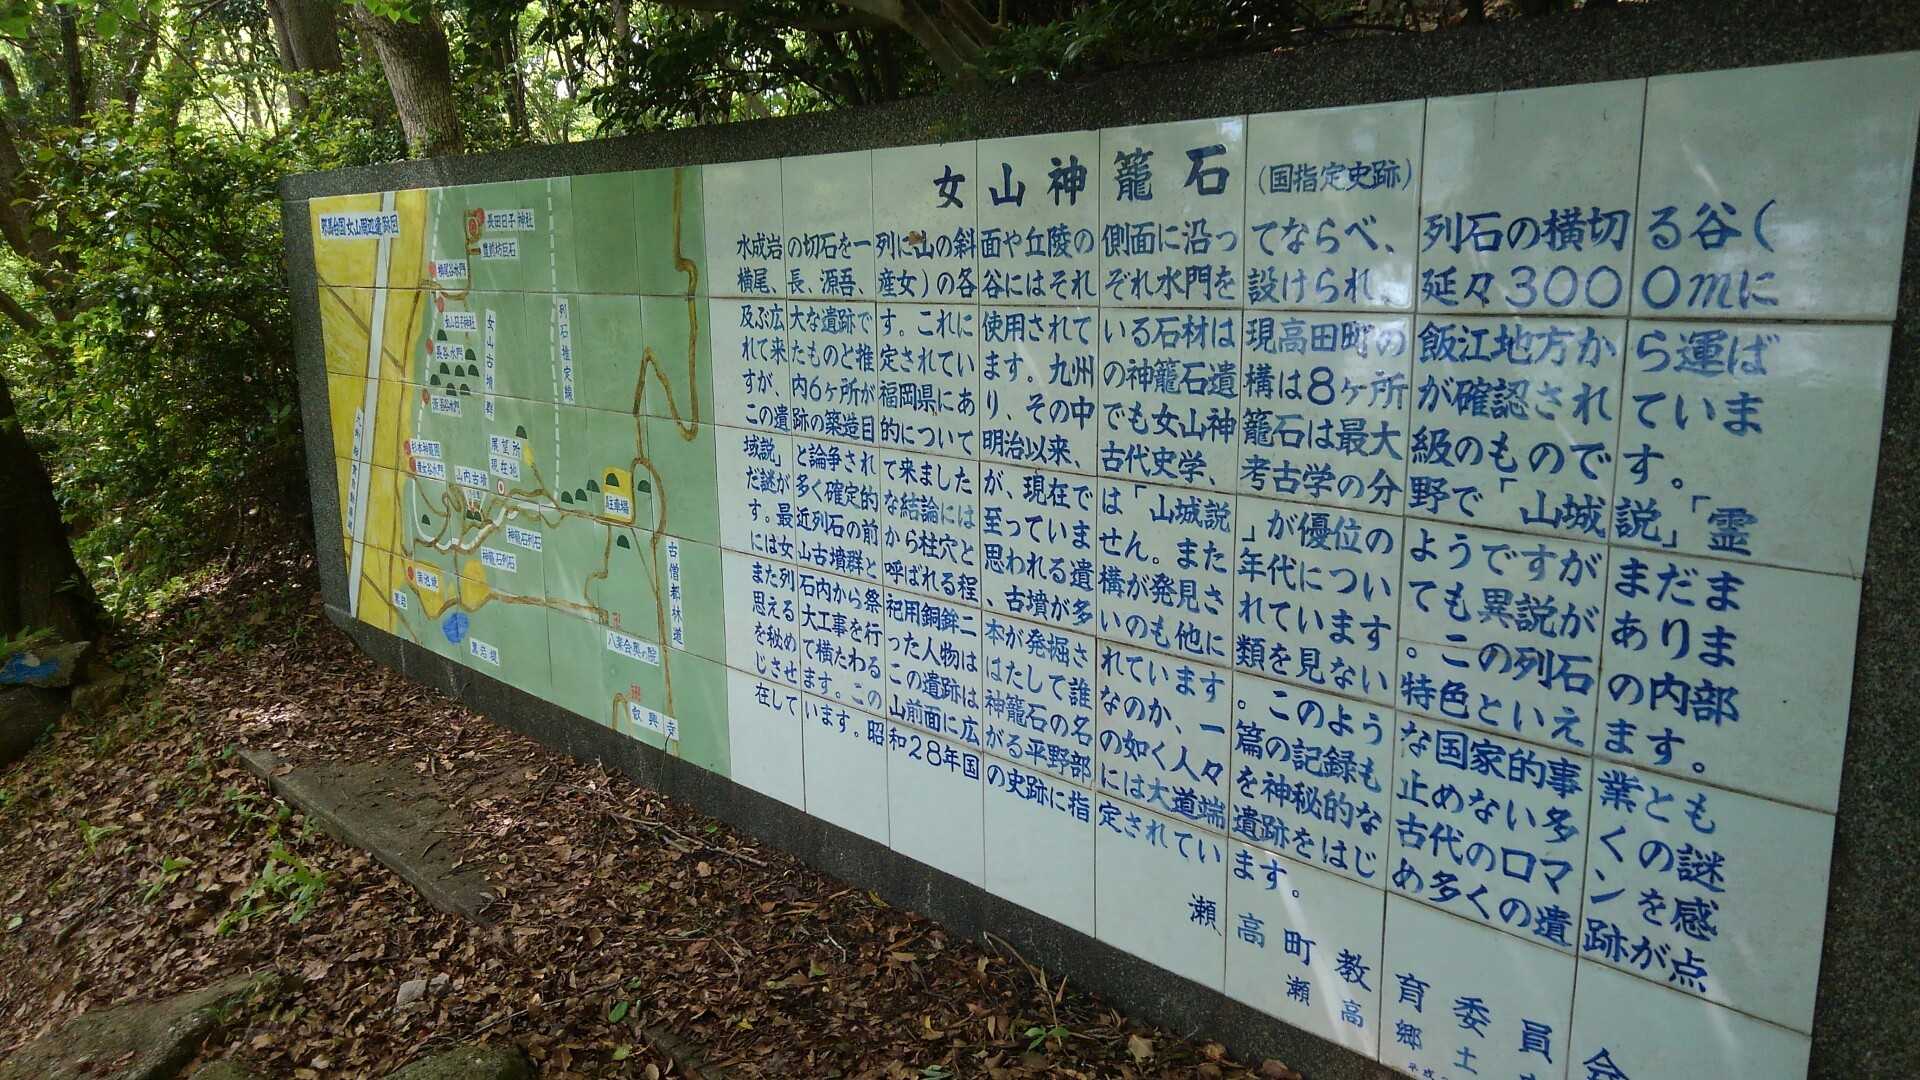 女山神籠石(国指定史跡)
水成岩の切石を一列に山の斜面や丘陵の側面に沿ってならべ、列石の横切る谷(
横尾、長、源吾、産女)の各谷にはそれぞれ水門を設けられ、延々3000mに
及ぶ広大な遺跡です。これに使用されている石材は現高田町の飯江地方から運ば
れて来たものと推定されています。九州の神籠石遺構は8ヶ所が確認されていま
すが、内6ヶ所が福岡県にあり、その中でも女山神籠石は最大級のものです。
この遺跡の築造目的について明治以来、古代史学、考古学の分野で「山城説」「霊
域説」と論争されて来ましたが、現在では「山城説」が優位のようですがまだま
だ謎が多く確定的な結論には至っていません。また年代についても異説がありま
す。最近列石の前から柱穴と思われる遺構が発見されています。この列石の内部
には女山古墳群と呼ばれる程、古墳が多いのも他に類を見ない特色といえます。
また列石内から祭祀用銅鉾二本が発掘されています。このような国家的事業とも
思える大工事を行った人物ははたして誰なのか、一篇の記録も止めない多くの謎
を秘めて横たわるこの遺跡は神籠石の名の如く人々を神秘的な古代のロマンを感
じさせます。この山前面に広がる平野部には大道端遺跡をはじめ多くの遺跡が点
在しています。昭和28年国の史跡に指定されています。
瀬高町教育委員会
瀬高郷土
邪馬台国女山周辺遺跡図
長田日子神社
横尾谷水門
女山日子神社
長谷水門
女山古墳群
列石推定線
展望所
現在地
山内古墳
駐車場
神籠石列石
神籠石列石
古僧都林道